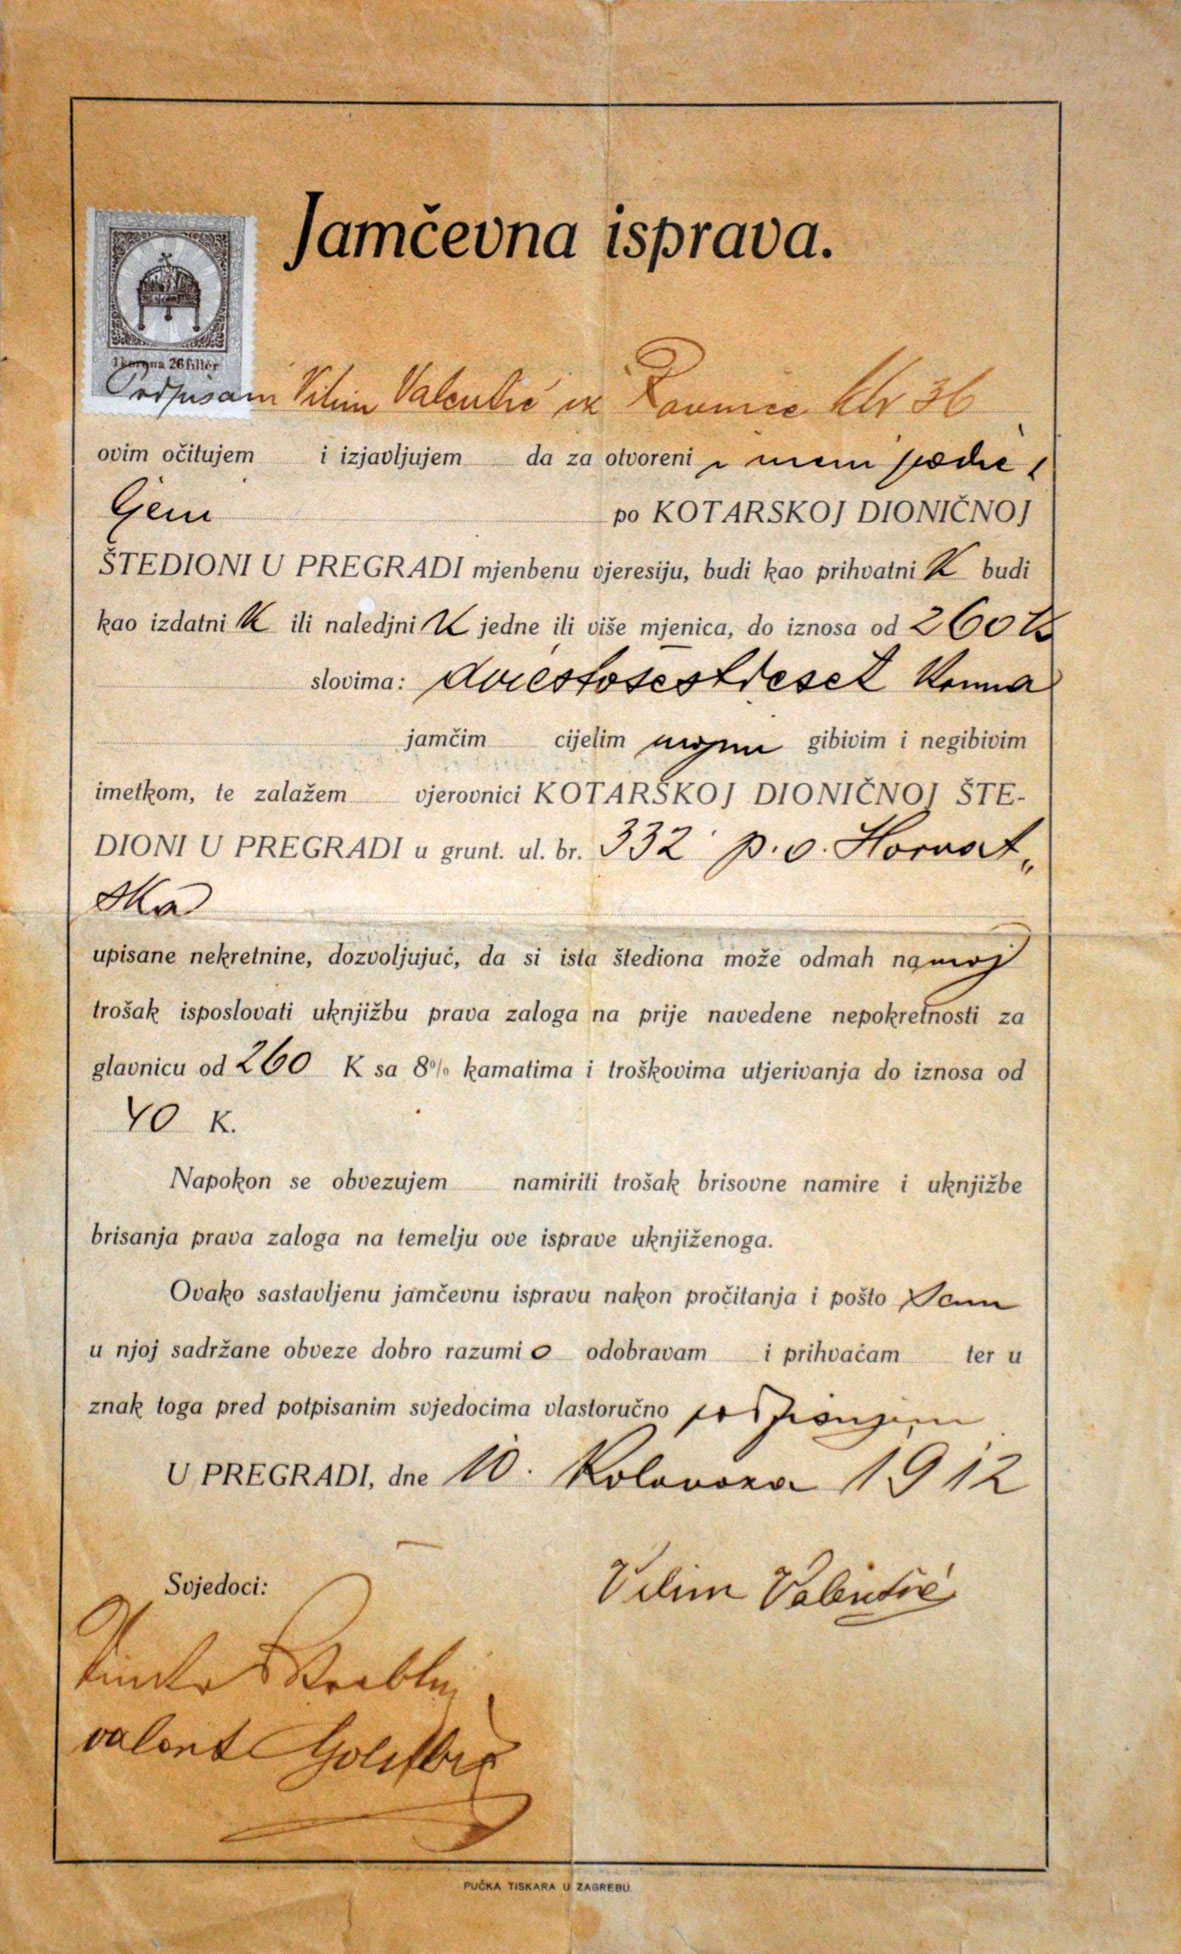 Jamčevna isprava.
1 korona 26 fillér
Podpisani Vilim Valentić iz Ravnice kbr 36
ovim očitujem i izjavljujem da za otvoreni i meni podie,
ljeni po KOTARSKOJ DIONIČNOJ
ŠTEDIONI U PREGRADI mjenbenu vjeresiju, budi kao prihvatnik budi
kao izdatnik ili naledjnik jedne ili više mjenica, do iznosa od 260 K
slovima: dviestošestdeset Kruna
jamčim cijelim mojim gibivim i negibivim
imetkom, te zalažem vjerovnici KOTARSKOJ DIONIČNOJ ŠTE-
DIONI U PREGRADI u grunt. ul. br. 332 p. o. Horvat„
ska
upisane nekretnine, dozvoljujuć, da si ista štediona može odmah na moj
trošak isposlovati uknjižbu prava zaloga na prije navedene nepokretnosti za
glavnicu od 260 K sa 8% kamatima i troškovima utjerivanja do iznosa od
40 K.
Napokon se obvezujem namiriti trošak brisovne namire i uknjižbe
brisanja prava zaloga na temelju ove isprave uknjiženoga.
Ovako sastavljenu jamčevnu ispravu nakon pročitanja i pošto sam
u njoj sadržane obveze dobro razumio odobravam i prihvaćam ter u
znak toga pred potpisanim svjedocima vlastoručno podpisujem
U PREGRADI, dne 10. Kolovoza 1912
Svjedoci: Vilim Valentić
valent
PUČKA TISKARA U ZAGREBU.